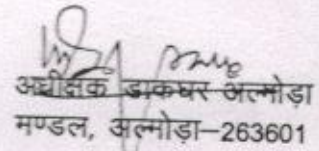 अधीक्षक डाकघर अल्मोड़ा
मण्डल, अल्मोड़ा–263601